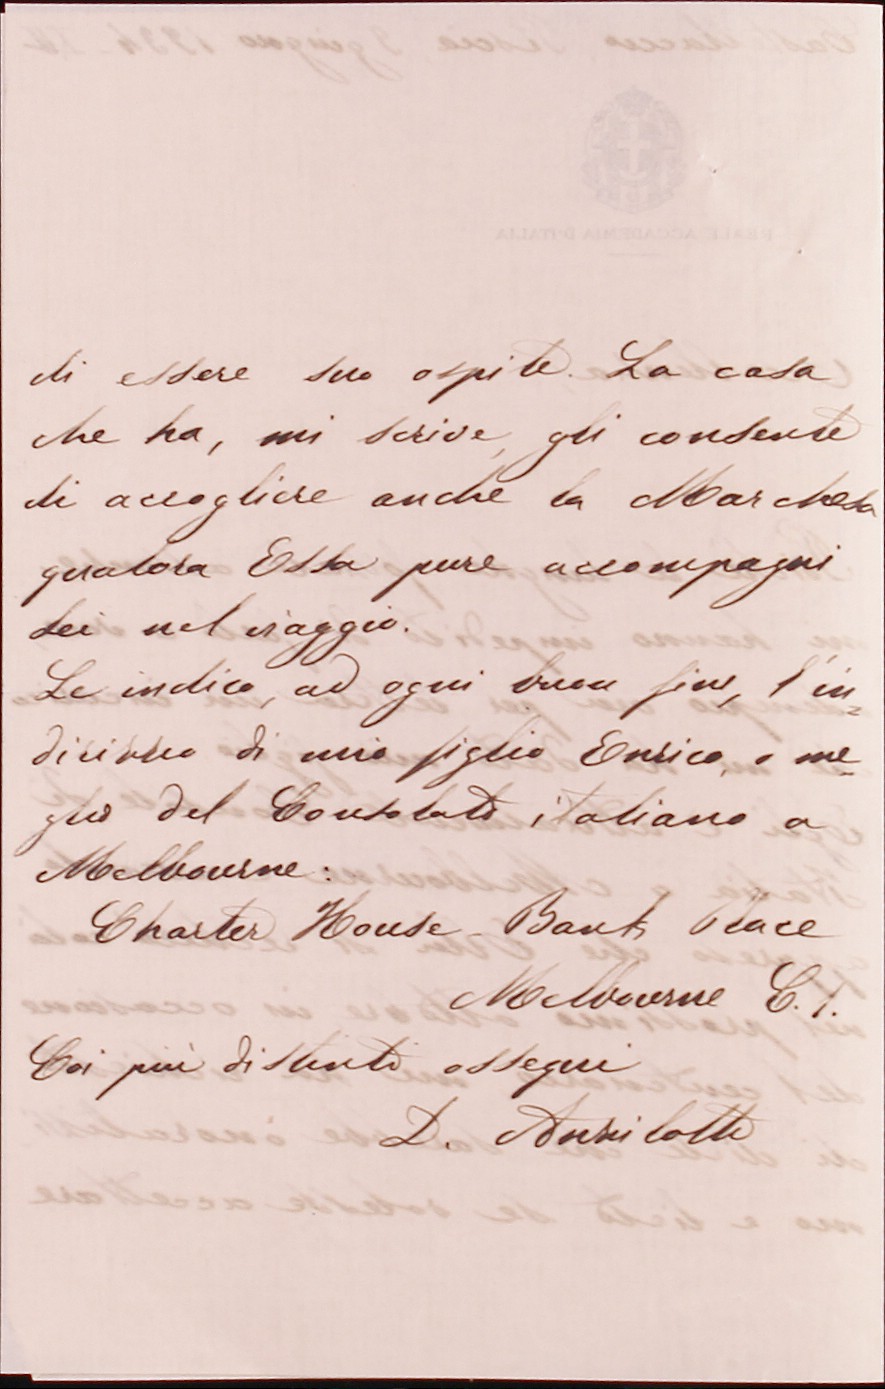 di essere suo ospite. La casa
che ha, mi scrive, gli consente
di accogliere anche la Marchesa
qualora Essa pure accompagni
Lei nel viaggio.
Le indico, ad ogni buon fine, l'in=
dirizzo di mio figlio Enrico, o me=
glio del Consolato italiano a
Melbourne:
Charter House - Bank Place
Melbourne C. 1.
Coi più distinti ossequi
D. Anzilotti